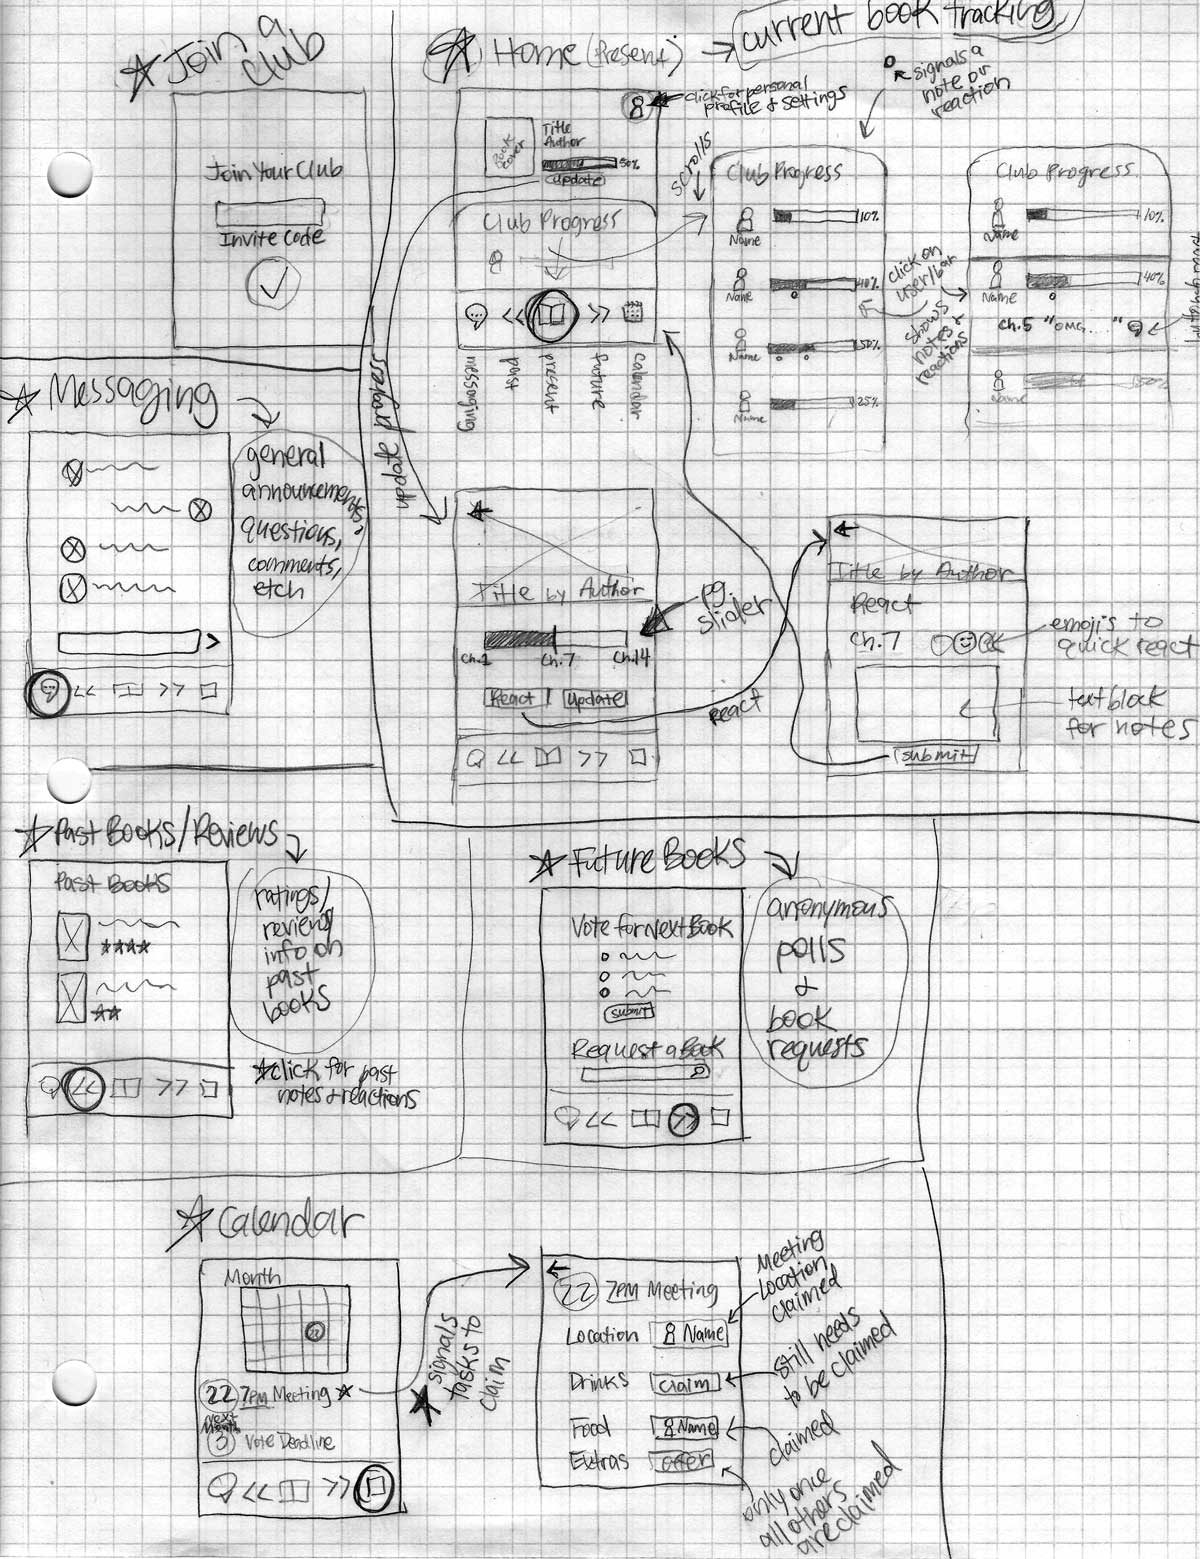 Join a
club
Join Your Club
Invite code
Home (Present)
current book tracking
click for personal
profile + settings
signals a
note or
reaction
Book
cover
Title
Author
50%
update
Club Progress
scrolls
messaging
past
present
future
calendar
update progress
Club Progress
10%
Name
40%
Name
50%
Name
25%
Name
click on
user/bar
shows
notes +
reactions
Club Progress
10%
Name
40%
Name
ch.5 "OMG...."
50%
Name
Messaging
general
announcements,
questions,
comments,
etch
Title by Author
pg.
slider
ch.1
ch.7
ch.14
React
update
React
Title by Author
React
ch.7
emoji's to
quick react
text block
for notes
submit
Past Books/Reviews
Past Books
ratings/
reviews/
info on
past
books
click for past
notes + reactions
Future Books
Vote for Next Book
submit
Request a Book
anonymous
polls
+
book
requests
Calendar
Month
22 7PM Meeting
next
Month
3 Vote Deadline
signals
tasks to
claim
22 7PM Meeting
Location Name
Drinks claim
Food Name
Extras offer
Meeting
Location
claimed
still needs
to be claimed
claimed
only once
all others
are claimed